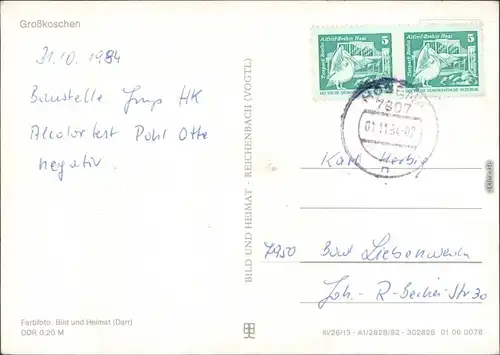 Großkoschen
31.10.1984
Baustelle Jump HK
Alcolortest Pohl Otte
negativ.
Farbfoto: Bild und Heimat (Darr)
DDR 0,20 M
BILD UND HEIMAT · REICHENBACH (VOGTL)
Alfred-Brehm-Haus 5
Tierpark Berlin
DEUTSCHE DEMOKRATISCHE REPUBLIK
Alfred-Brehm-Haus 5
Tierpark Berlin
DEUTSCHE DEMOKRATISCHE REPUBLIK
7807
01.11.84-07
n
Karl Herbig
7950 Bad Liebenwerda
Joh.-R-Becher-Str 30
III/26/13 · A1/2828/82 · 302828 01 06 0076